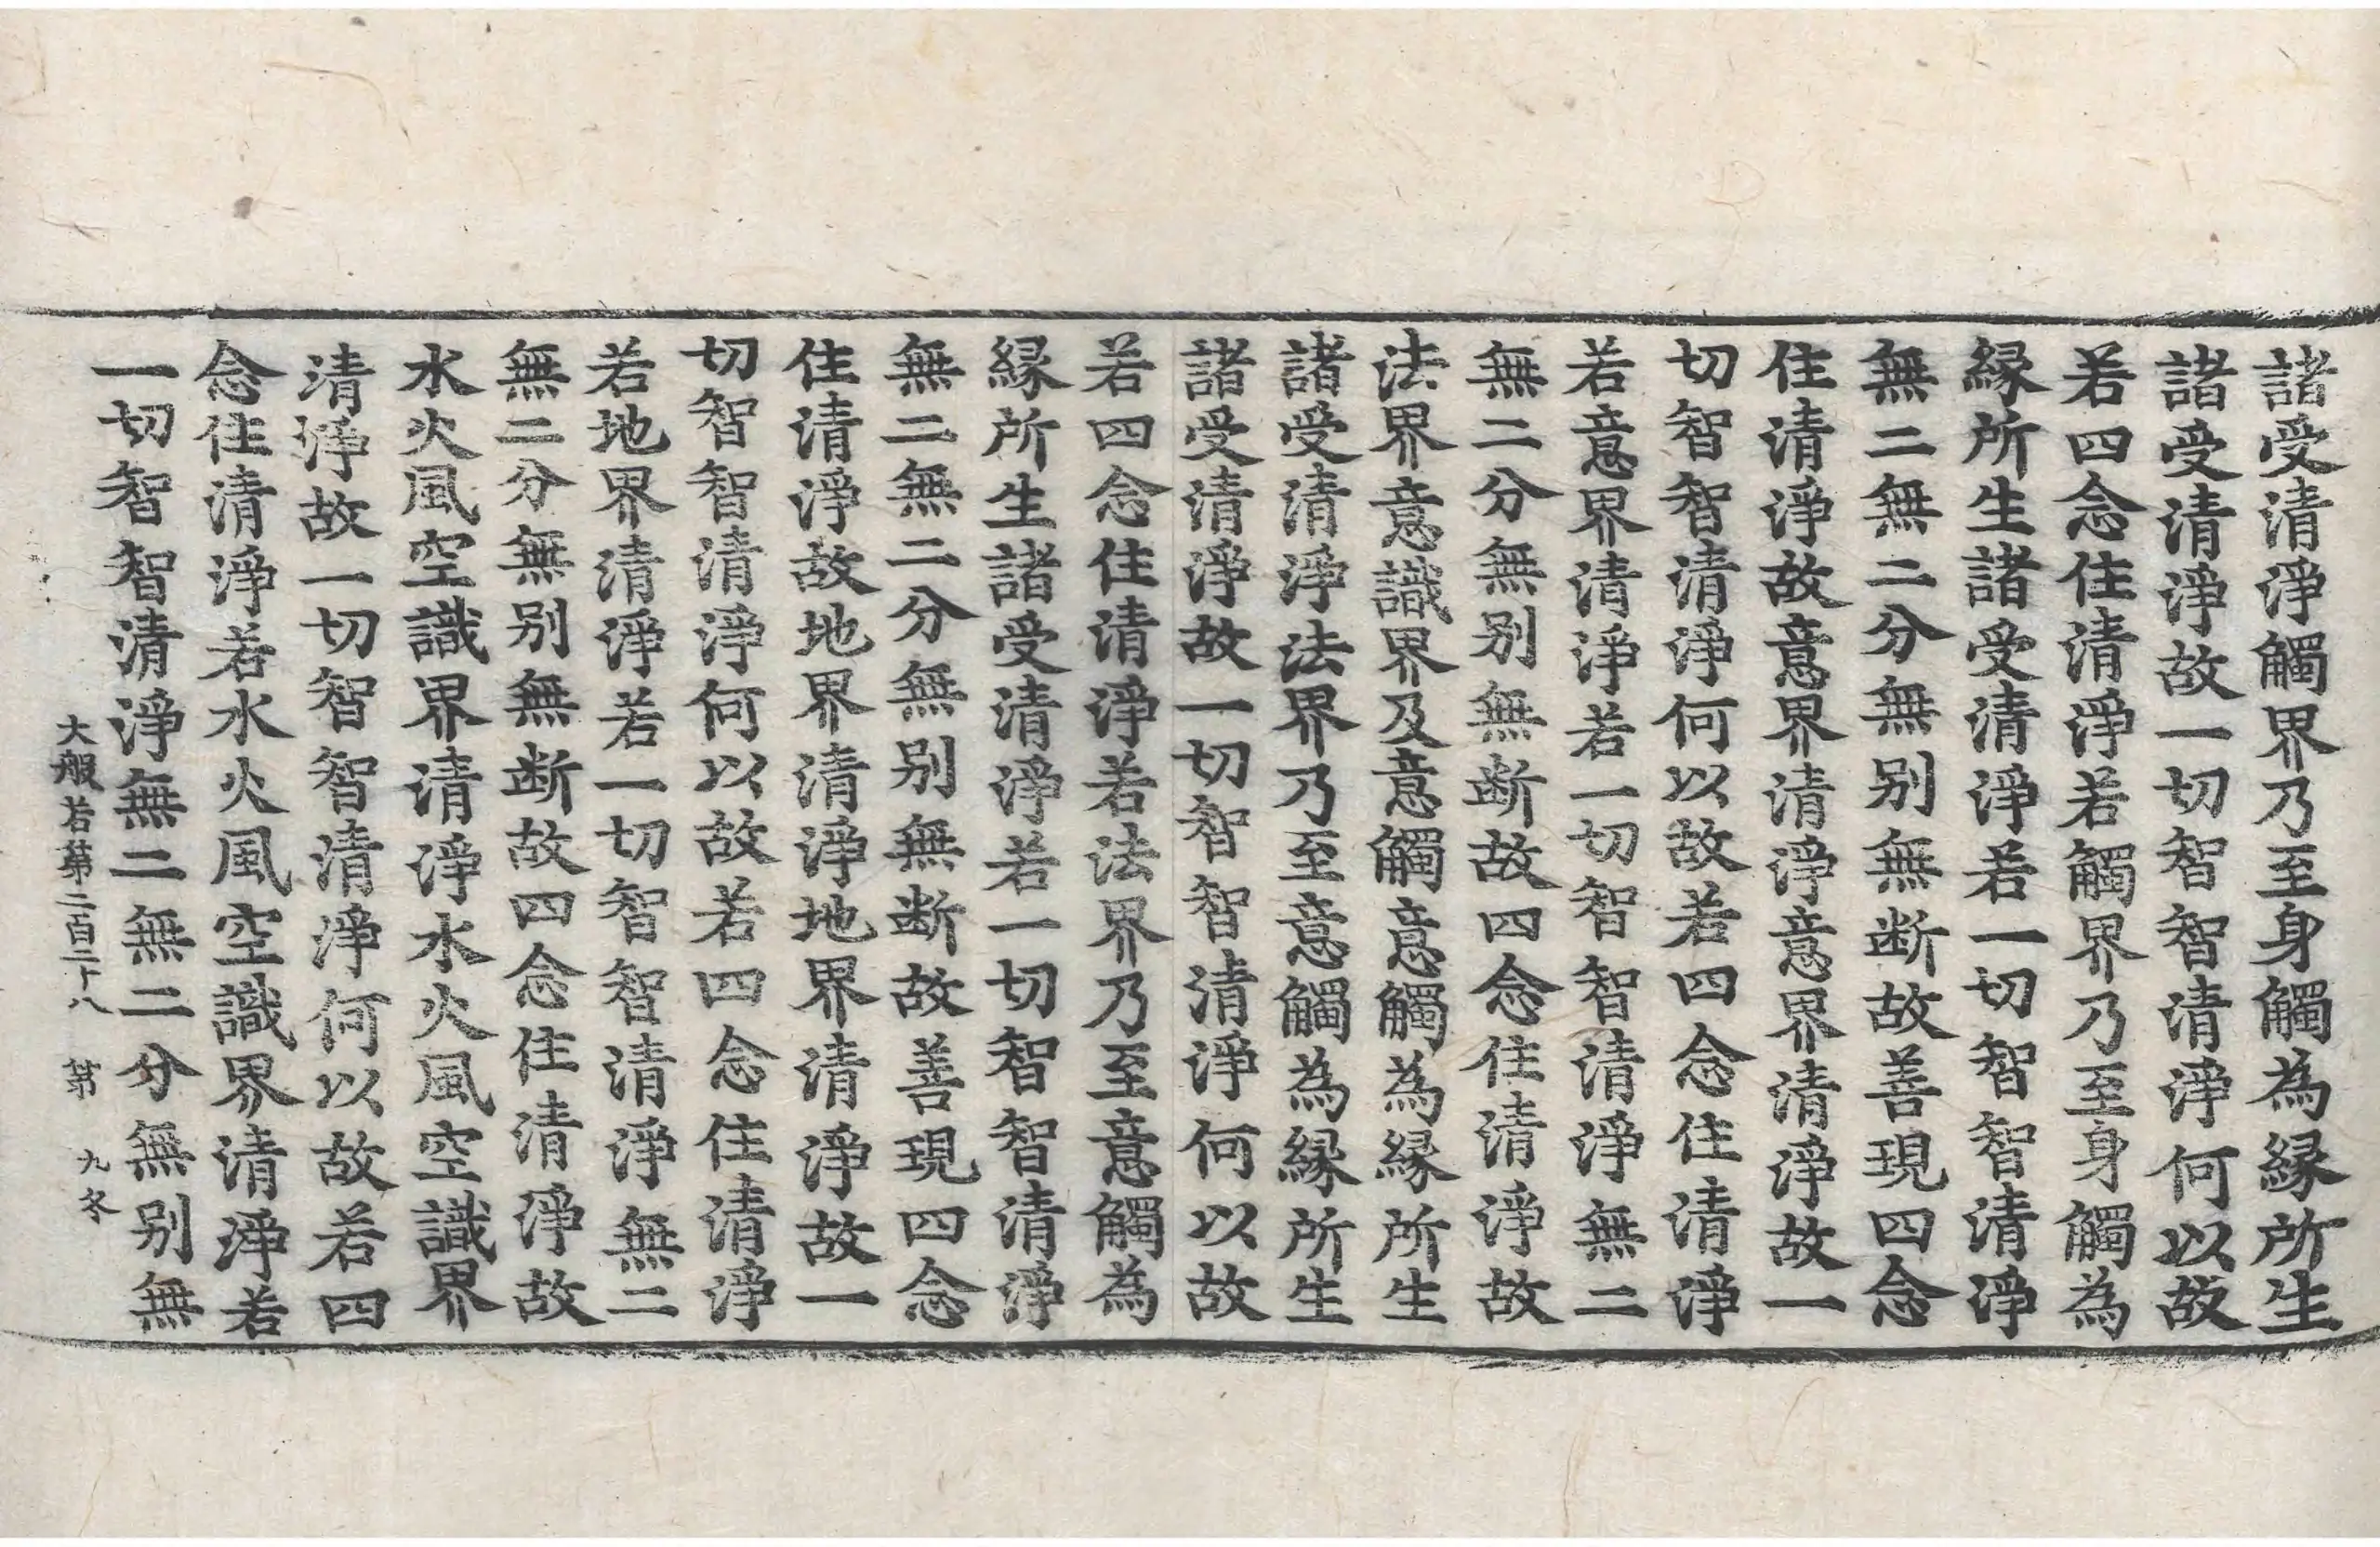 諸受清淨觸界乃至身觸為縁所生
諸受清淨故一切智智清淨何以故
若四念住清淨若觸界乃至身觸為
縁所生諸受清淨若一切智智清淨
無二無二分無别無断故善現四念
住清淨故意界清淨意界清淨故一
切智智清淨何以故若四念住清淨
若意界清淨若一切智智清淨無二
無二分無别無断故四念住清淨故
法界意識界及意觸意觸為縁所生
諸受清淨法界乃至意觸為縁所生
諸受清淨故一切智智清淨何以故
若四念住清淨若法界乃至意觸為
縁所生諸受清淨若一切智智清淨
無二無二分無别無断故善現四念
住清淨故地界清淨地界清淨故一
切智智清淨何以故若四念住清淨
若地界清淨若一切智智清淨無二
無二分無别無断故四念住清淨故
水火風空識界清淨水火風空識界
清淨故一切智智清淨何以故若四
念住清淨若水火風空識界清淨若
一切智智清淨無二無二分無别無
大般若第二百二十八 第 九冬